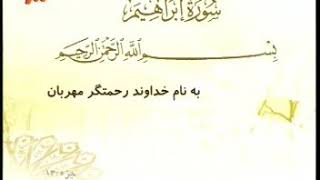 سُورَةُ إِبْرَاهِيمَ
بِسْمِ اللَّهِ الرَّحْمَٰنِ الرَّحِيمِ
به نام خداوند رحمتگر مهربان